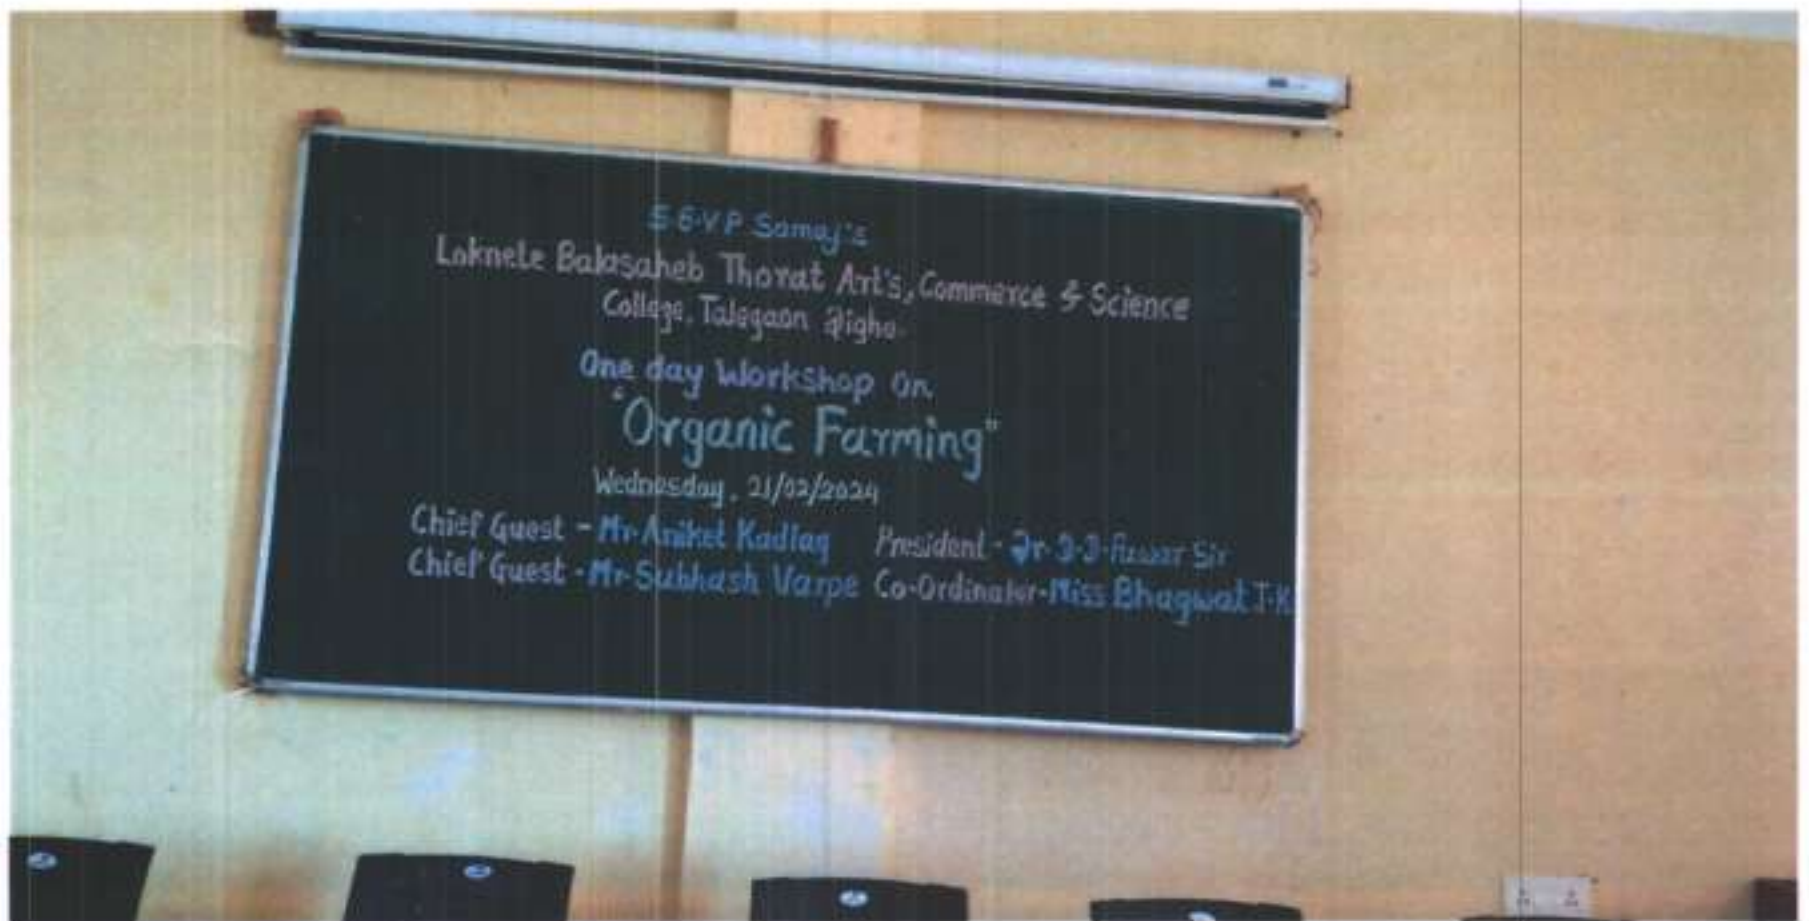 S.G.V.P Samaj's
Loknete Balasaheb Thorat Art's, Commerce & Science
College, Talegaon Dighe.
One day Workshop on
"Organic Farming"
Wednesday, 21/02/2024
Chief Guest - Mr. Aniket Kadlag President - Dr. Sir
Chief Guest - Mr. Subhash Varpe Co-Ordinator - Miss Bhagwat T.K.